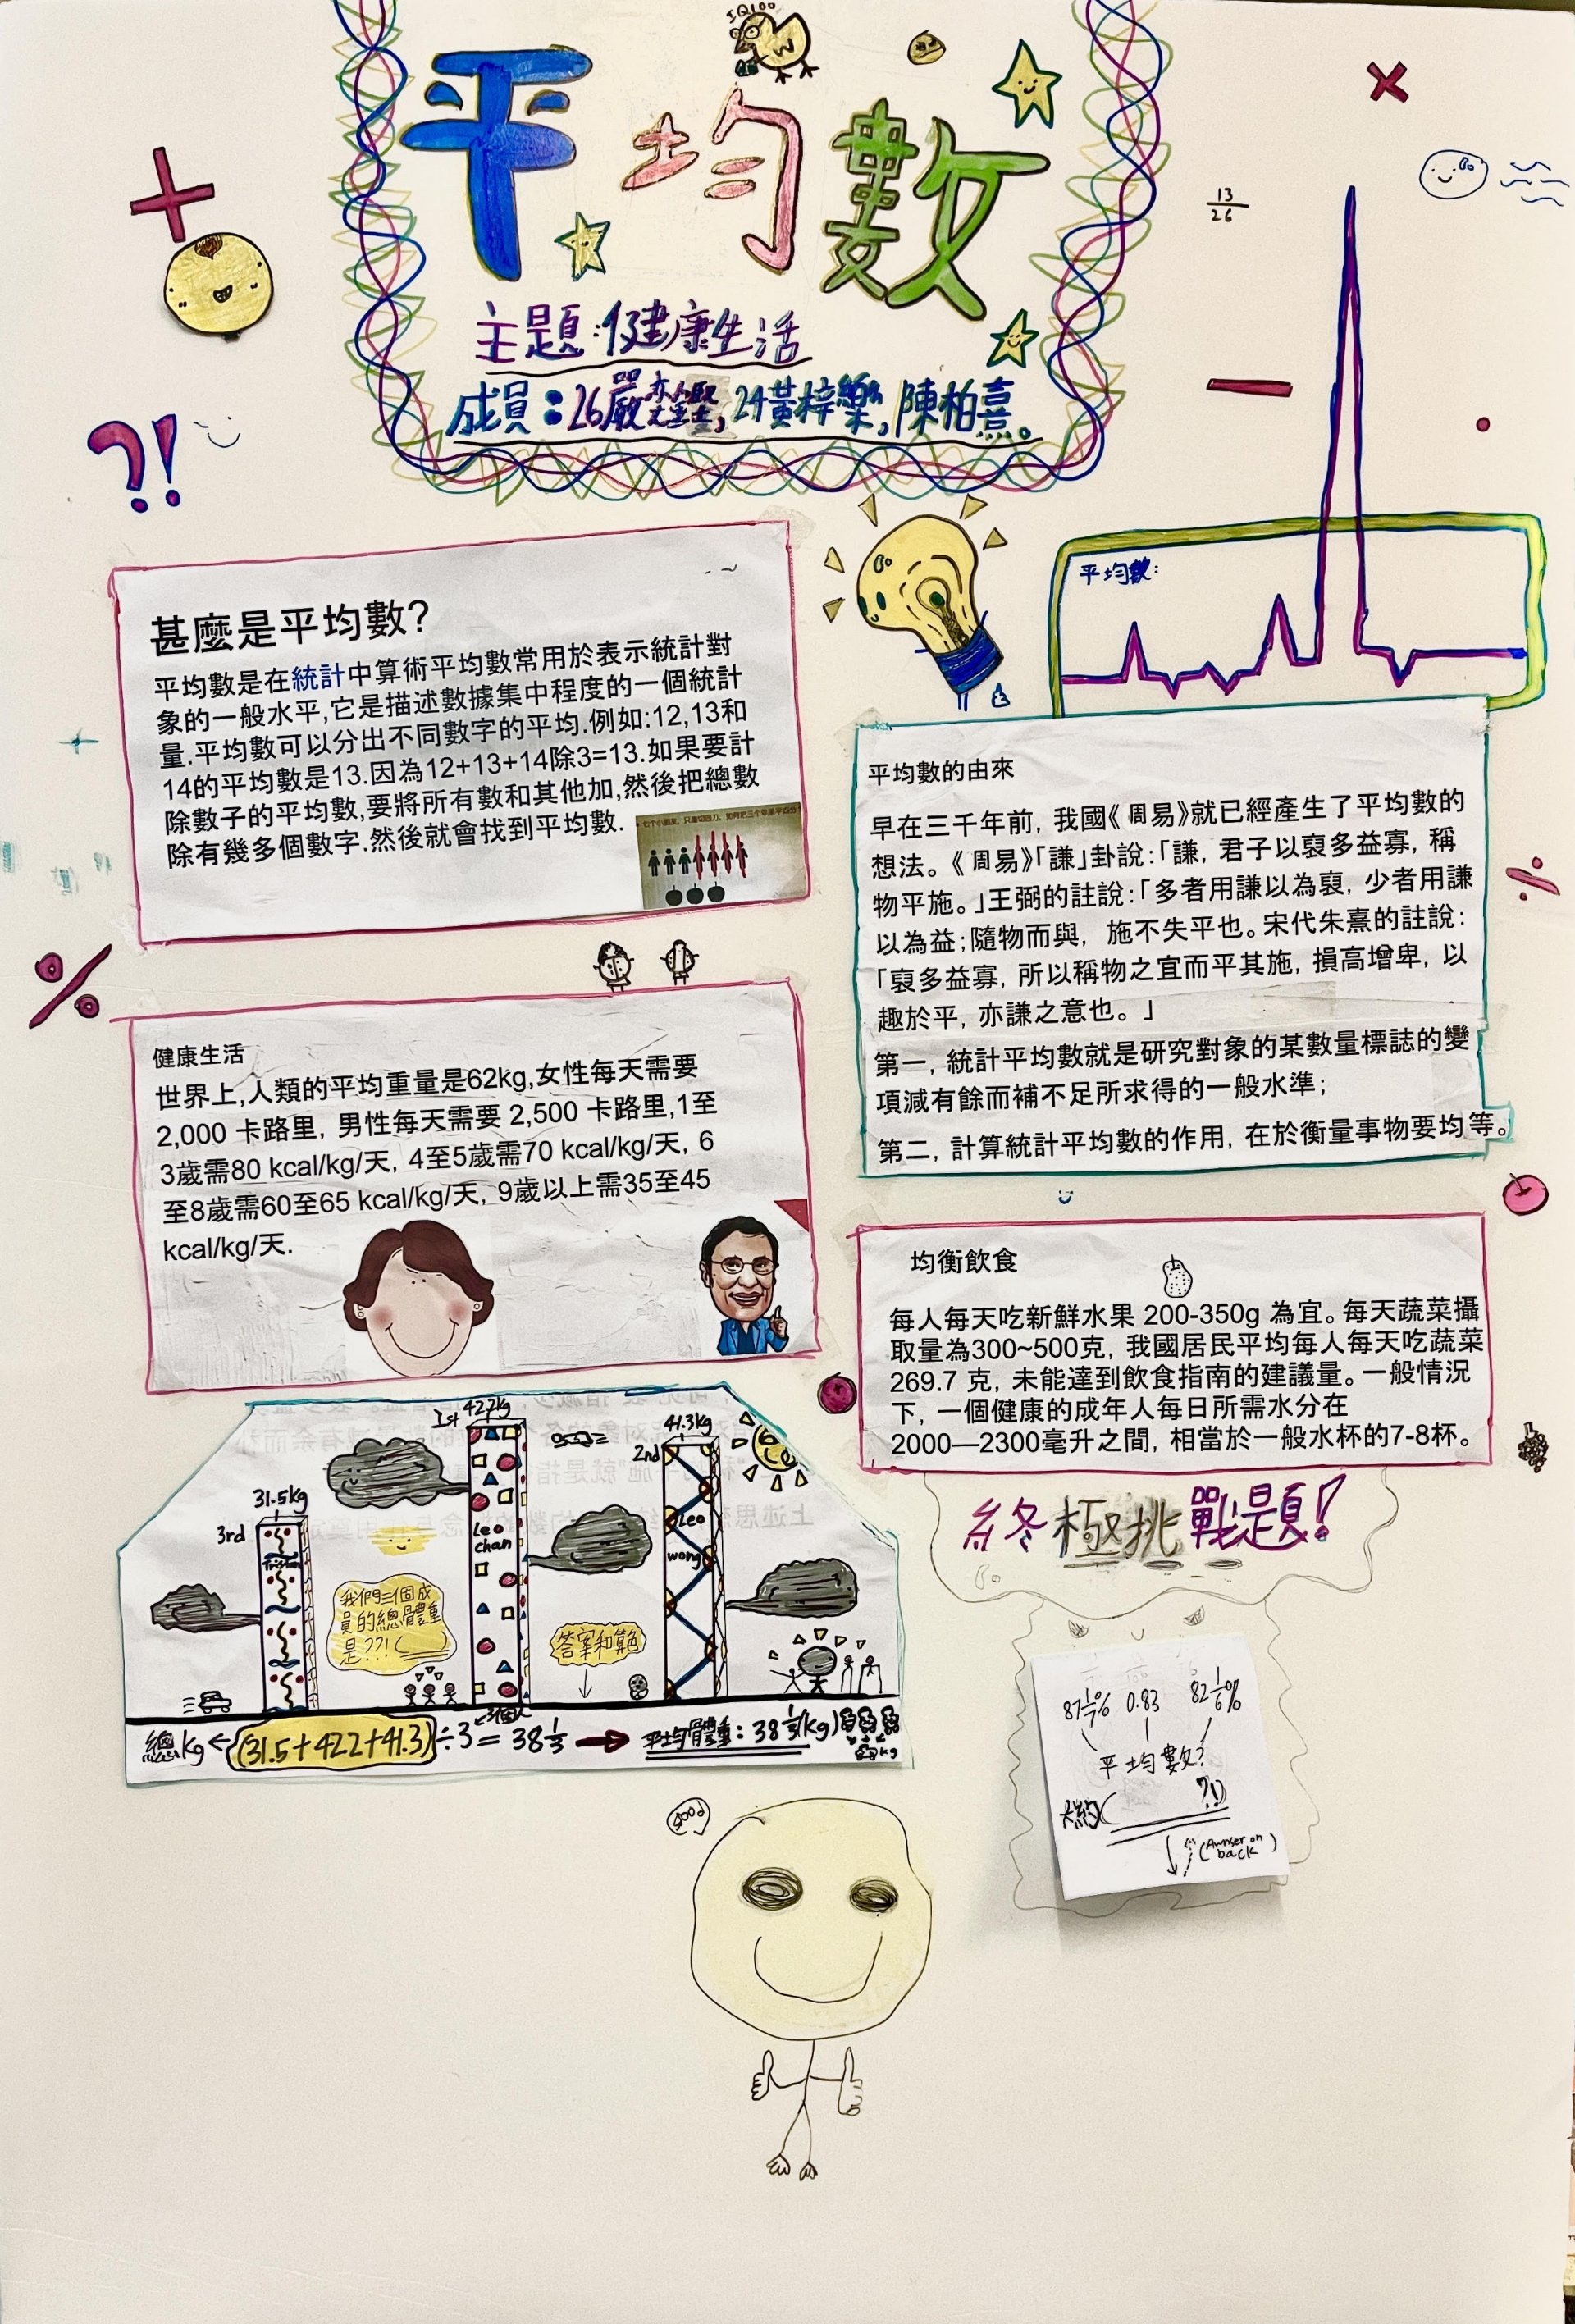 IQ100
平均數
主題:健康生活
成員:26嚴亦堅,24黃梓樂,陳柏熹。
13
26
?!
平均數:
甚麼是平均數?
平均數是在統計中算術平均數常用於表示統計對
象的一般水平,它是描述數據集中程度的一個統計
量.平均數可以分出不同數字的平均.例如:12,13和
14的平均數是13.因為12+13+14除3=13.如果要計
除數子的平均數,要將所有數和其他加,然後把總數
除有幾多個數字.然後就會找到平均數.
平均數的由來
早在三千年前, 我國《周易》就已經產生了平均數的
想法。《周易》「謙」卦說:「謙, 君子以裒多益寡, 稱
物平施。」王弼的註說:「多者用謙以為裒, 少者用謙
以為益;隨物而與, 施不失平也。宋代朱熹的註說:
「裒多益寡, 所以稱物之宜而平其施, 損高增卑, 以
趣於平, 亦謙之意也。」
第一, 統計平均數就是研究對象的某數量標誌的變
項減有餘而補不足所求得的一般水準;
第二, 計算統計平均數的作用, 在於衡量事物要均等。
健康生活
世界上,人類的平均重量是62kg,女性每天需要
2,000 卡路里, 男性每天需要 2,500 卡路里,1至
3歲需80 kcal/kg/天, 4至5歲需70 kcal/kg/天, 6
至8歲需60至65 kcal/kg/天, 9歲以上需35至45
kcal/kg/天.
均衡飲食
每人每天吃新鮮水果 200-350g 為宜。每天蔬菜攝
取量為300~500克, 我國居民平均每人每天吃蔬菜
269.7 克, 未能達到飲食指南的建議量。一般情況
下, 一個健康的成年人每日所需水分在
2000—2300毫升之間, 相當於一般水杯的7-8杯。
1st 42.2kg
41.3kg
2nd
31.5kg
3rd
Tristan
Leo
chan
Leo
wong
我們三個成
員的總體重
是??!(
答案和顏色
3個人
總kg ← (31.5+42.2+41.3)÷3 = 38 1/3 → 平均體重: 38 1/3(kg)
kg
終極挑戰題!
87 1/7% 0.83 82 1/6%
平均數?
大約( ?!)
(Awnser on
back)
good